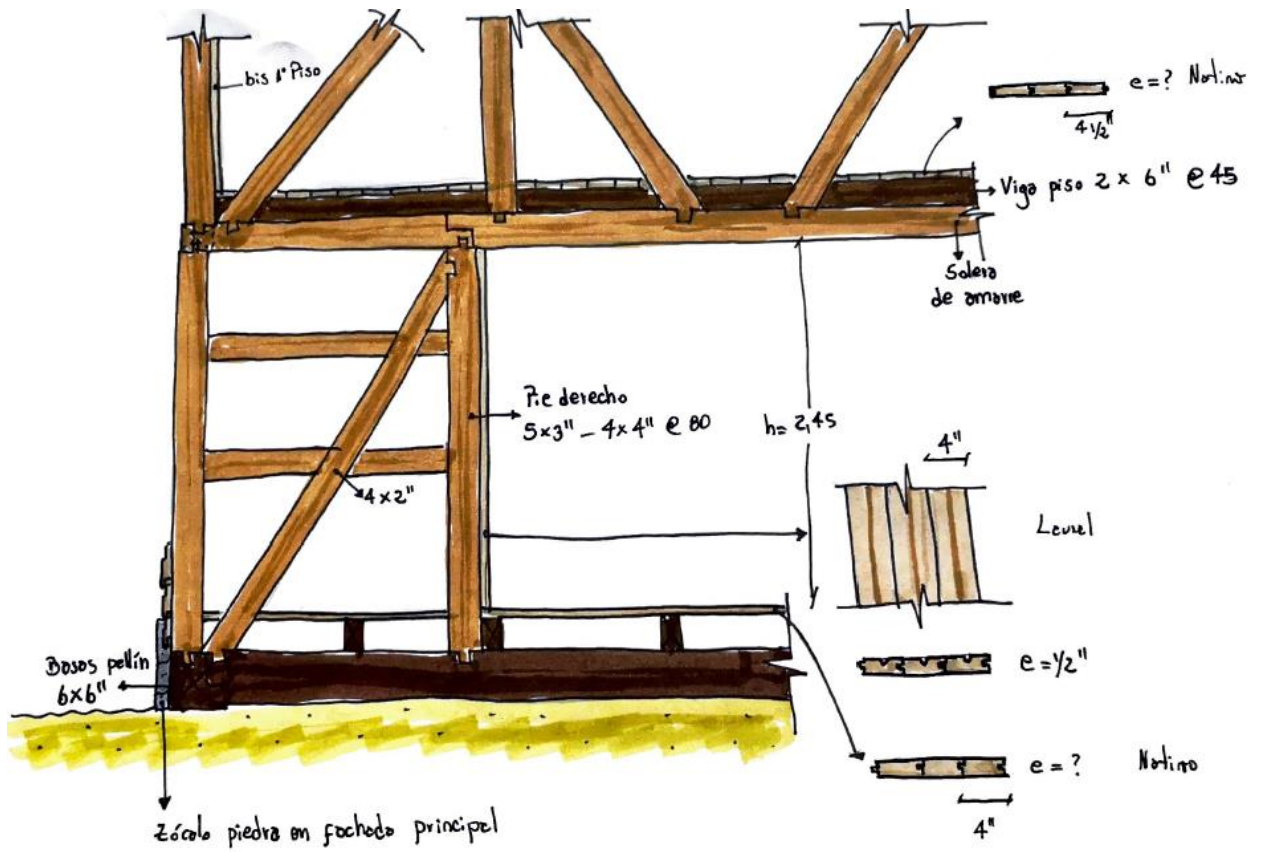 bis 1° Piso
e=? Nativo
4 1/2"
Viga piso 2 x 6" @ 45
Solera
de amarre
Pie derecho
5x3" – 4x4" @ 80
h= 2,45
4x2"
4"
Laurel
e=1/2"
Basas pellín
6x6"
e=? Nativo
4"
Zócalo piedra en fachada principal